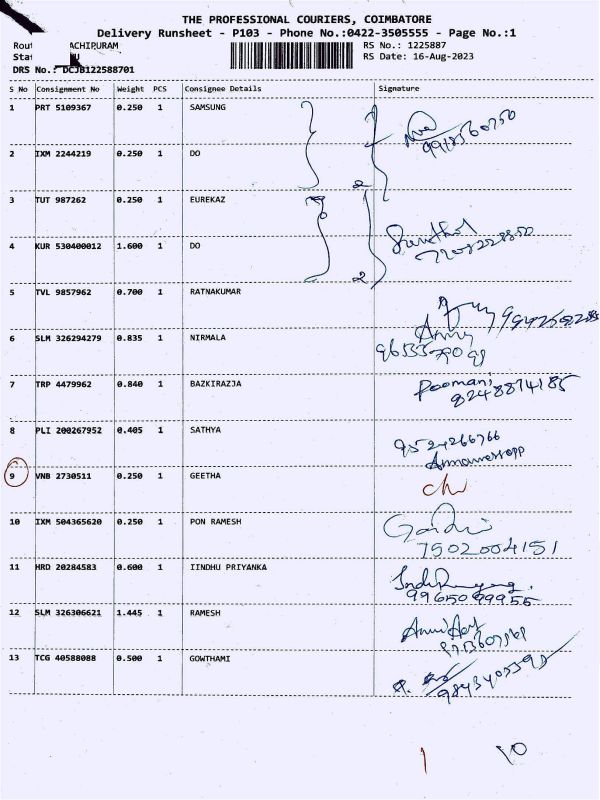 THE PROFESSIONAL COURIERS, COIMBATORE
Delivery Runsheet - P103 - Phone No.:0422-3505555 - Page No.:1
ACHIPURAM RS No.: 1225887
RS Date: 16-Aug-2023
DRS No.: DCJB122588701
S No Consignment No Weight PCS Consignee Details Signature
1 PRT 5109367 0.250 1 SAMSUNG
2 IXM 2244219 0.250 1 DO
2
3 TUT 987262 0.250 1 EUREKAZ
4 KUR 530400012 1.600 1 DO
2
5 TVL 9857962 0.700 1 RATNAKUMAR
6 SLM 326294279 0.835 1 NIRMALA
7 TRP 4479962 0.840 1 BAZKIRAZJA Poomani
8248814185
8 PLI 200267952 0.405 1 SATHYA 9524266766
9 VNB 2730511 0.250 1 GEETHA
10 IXM 504365620 0.250 1 PON RAMESH
7502004151
11 HRD 20284583 0.600 1 IINDHU PRIYANKA
9965099955
12 SLM 326306621 1.445 1 RAMESH
13 TCG 40588088 0.500 1 GOWTHAMI
10